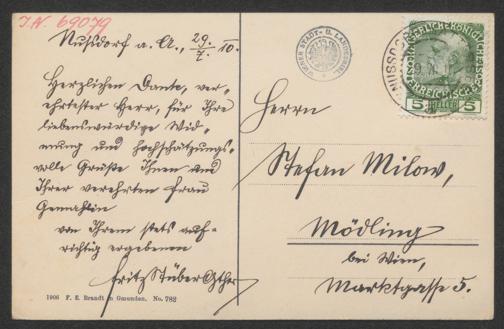 I.N. 69079
Nußdorf a. A., 29./7. 10.
Herzlichen Dank, ver-
ehrtester Herr, für Ihre
liebenswürdige Wid-
mung und hochschätzungs-
volle Grüße Ihnen und
Ihrer verehrten Frau
Gemahlin
von Ihrem stets auf-
richtig ergebenen
Fritz Stüber Gther
1906 F. E. Brandt in Gmunden. No. 782
WIENER STADT- U. LANDESBIBL.
5 HELLER 5
NUSSDO
Herrn
Stefan Milow,
Mödling
bei Wien,
Marktgasse 5.